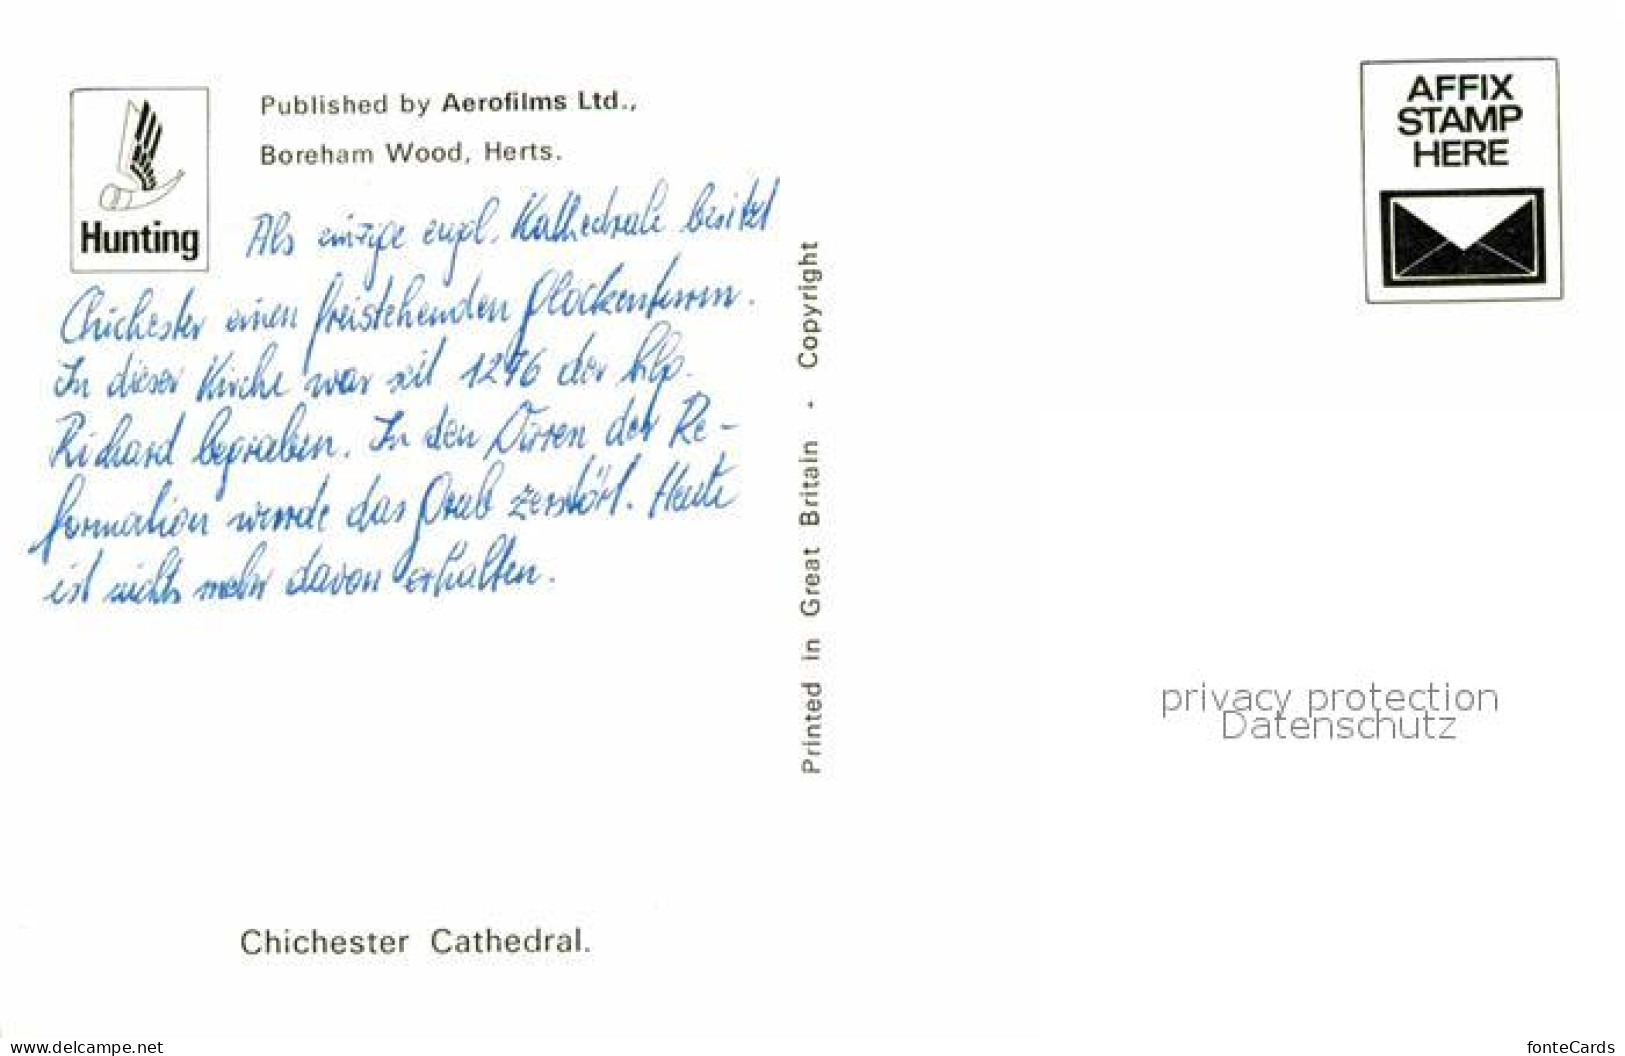 Hunting
Published by Aerofilms Ltd.,
Boreham Wood, Herts.
Als einzige engl. Kathedrale besitzt
Chichester einen freistehenden Glockenturm.
In dieser Kirche war seit 1276 der hlg.
Richard begraben. In den Wirren der Re-
formation wurde das Grab zerstört. Heute
ist nichts mehr davon erhalten.
Chichester Cathedral.
Printed in Great Britain - Copyright
AFFIX
STAMP
HERE
privacy protection
Datenschutz
www.delcampe.net
fonteCards